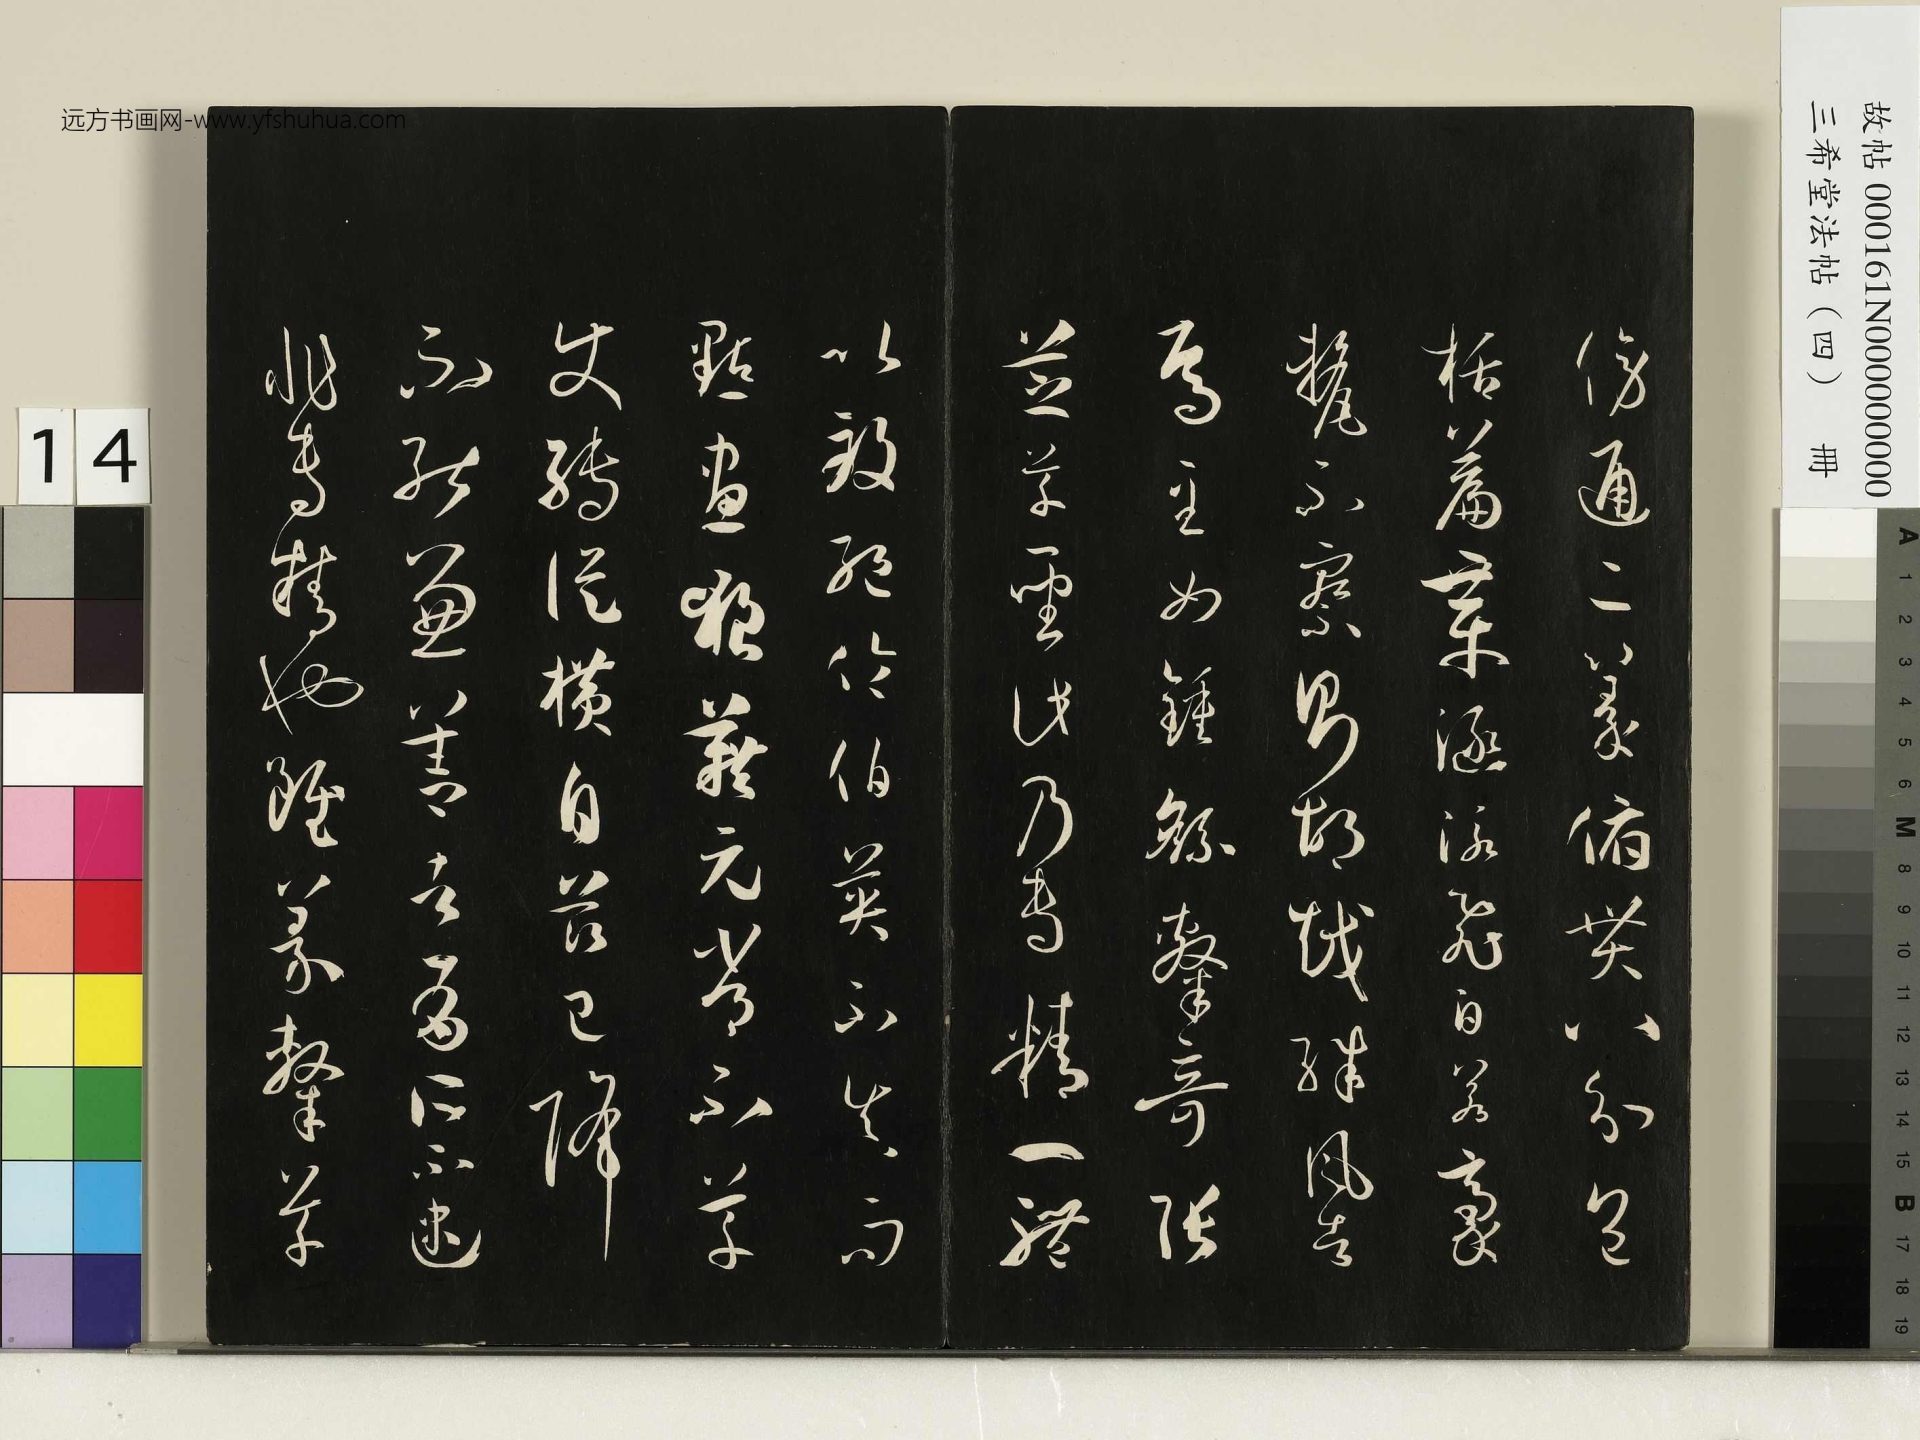 远方书画网-www.yfshuhua.com
故帖 000161N000000000
三希堂法帖（四） 冊
傍通二篆俯貫八分包
括篇章涵泳飛白若豪
氂不察則胡越殊風者
焉至如鍾繇隸奇張
芝草聖此乃專精一體
以致絕倫伯英不真而
點畫狼藉元常不草
使轉縱橫自茲已降
不能兼善者有所不逮
非專精也雖篆隸草
14
A 1 2 3 4 5 6 M 8 9 10 11 12 13 14 15 B 17 18 19